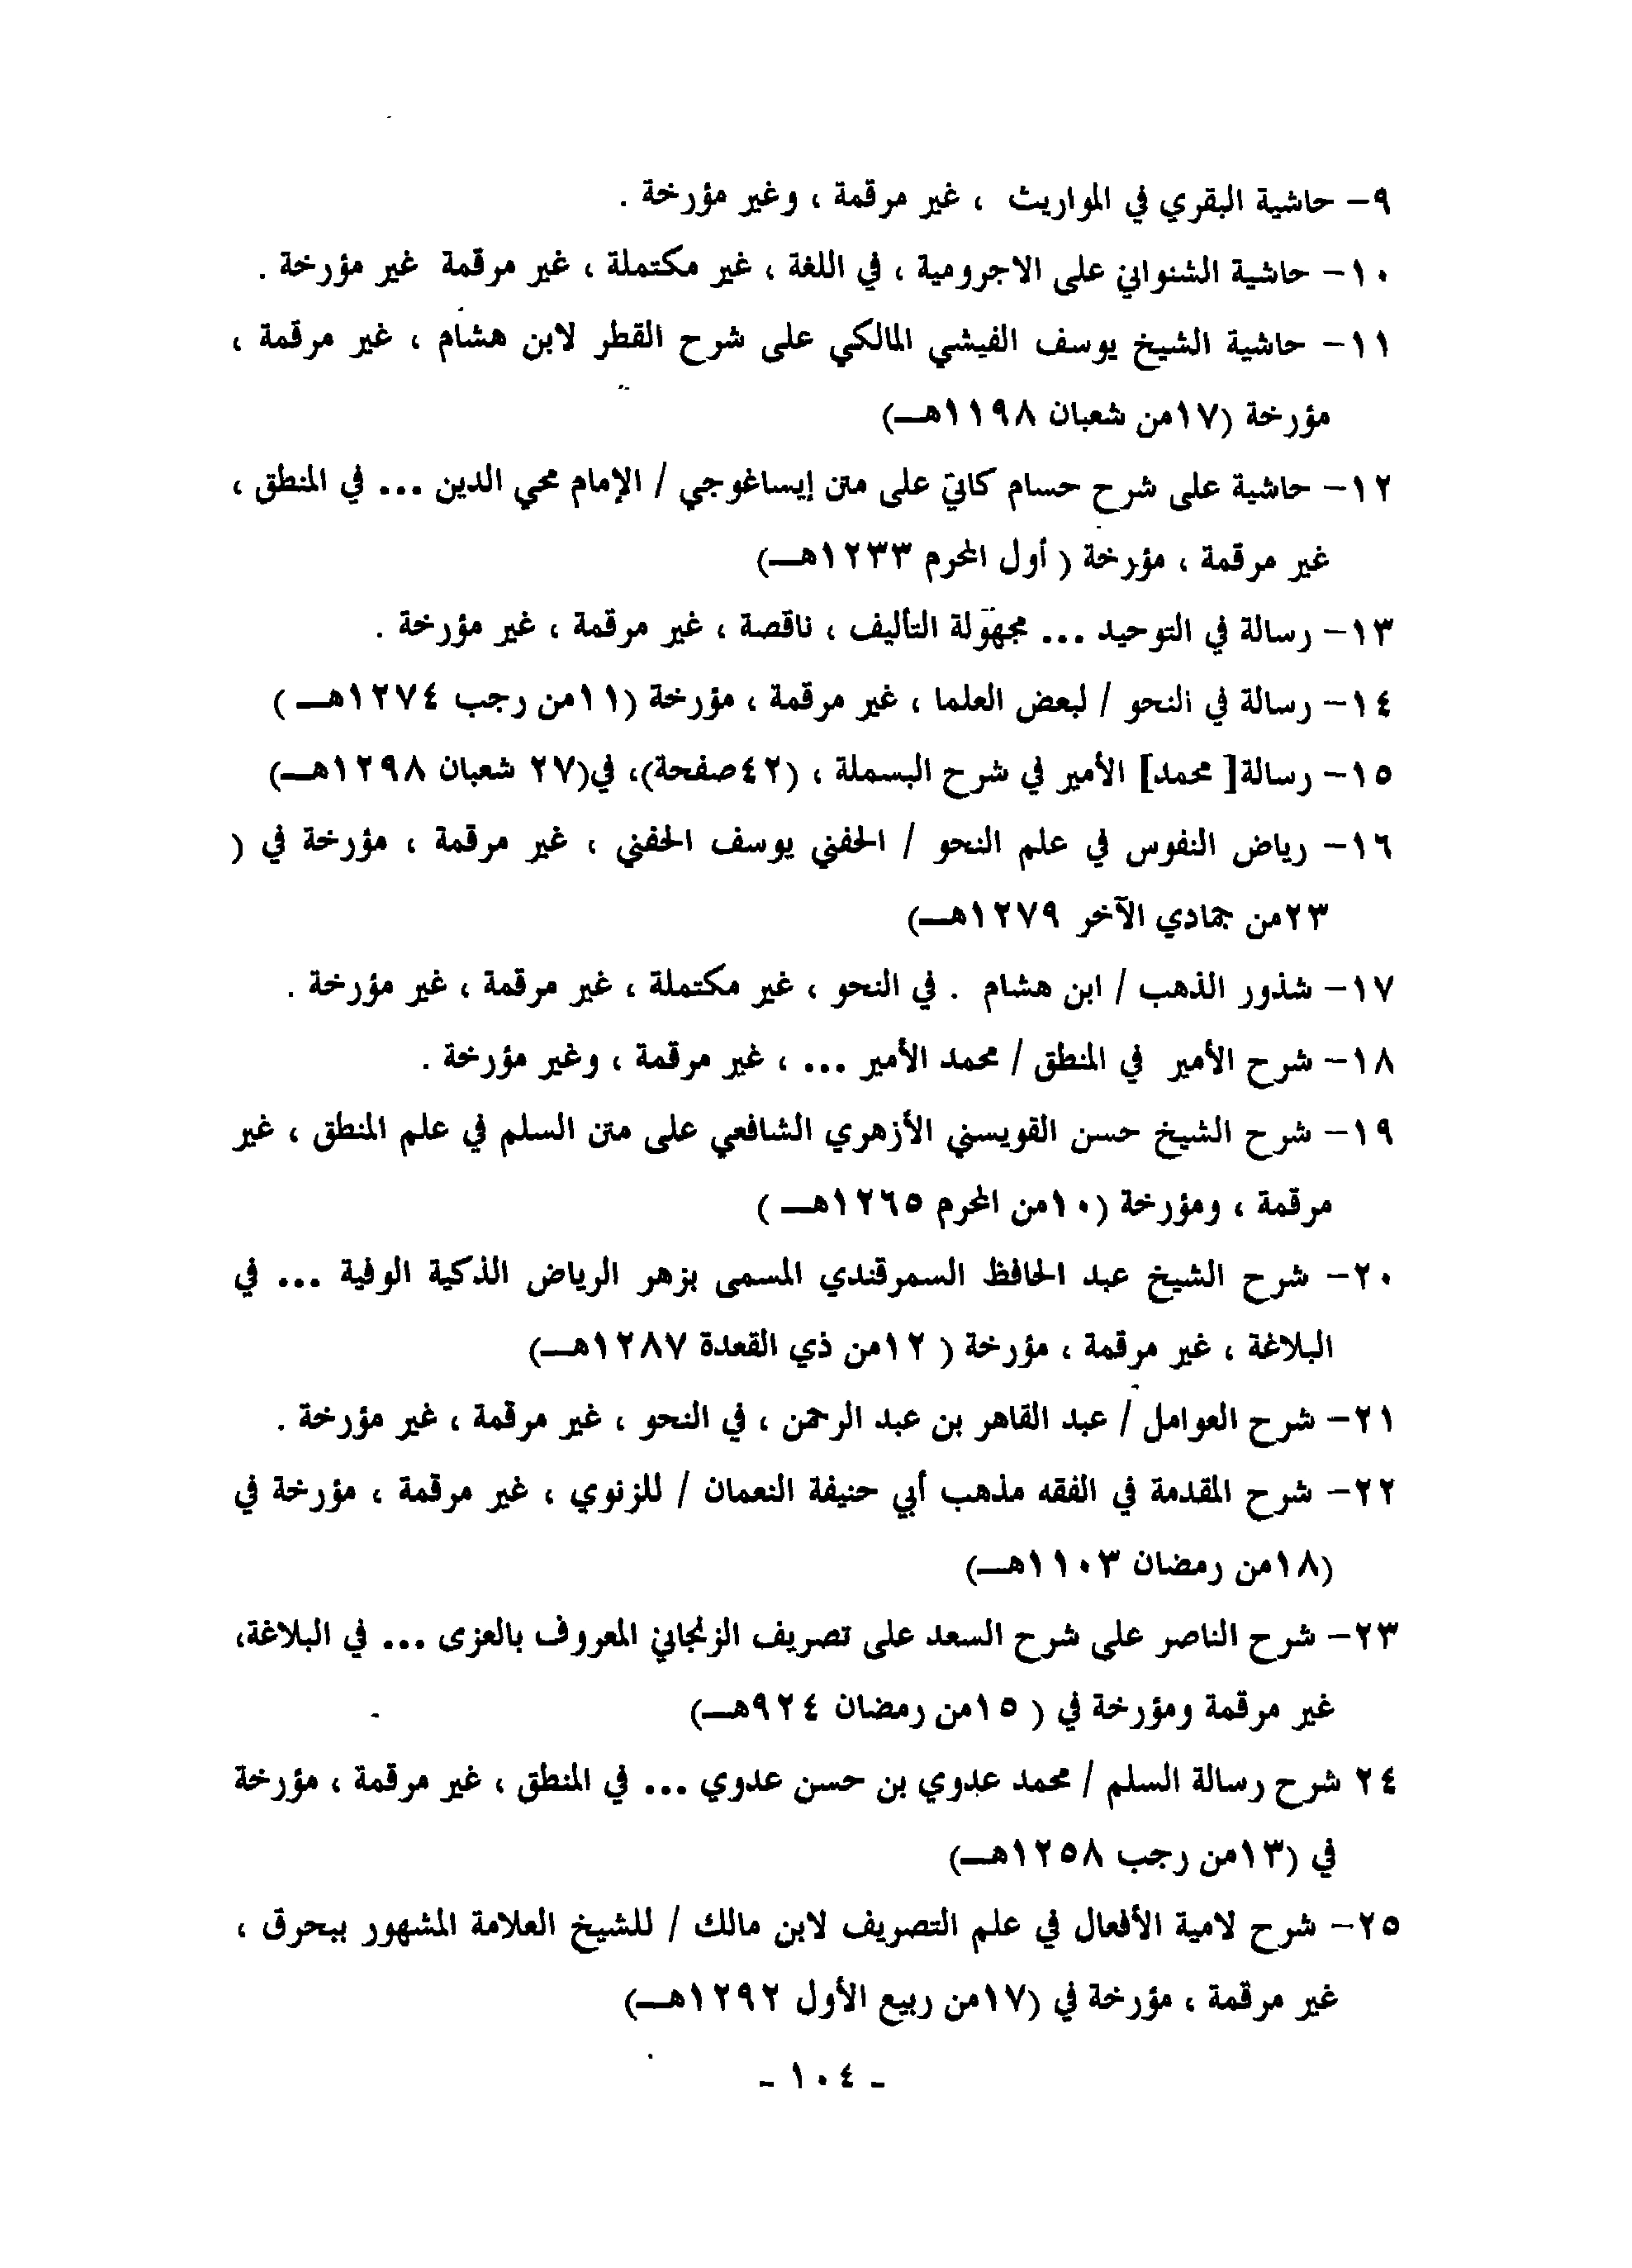 ٩- حاشية البقري في المواريث ، غير مرقمة ، وغير مؤرخة .
١٠- حاشية الشنواني على الاجرومية ، في اللغة ، غير مكتملة ، غير مرقمة غير مؤرخة .
١١- حاشية الشيخ يوسف الفيشي المالكي على شرح القطر لابن هشام ، غير مرقمة ،
مؤرخة (١٧من شعبان ١١٩٨هـ)
١٢- حاشية على شرح حسام كاتي على متن إيساغوجي / الإمام محي الدين ... في المنطق ،
غير مرقمة ، مؤرخة ( أول المحرم ١٢٣٣هـ)
١٣- رسالة في التوحيد ... مجهولة التأليف ، ناقصة ، غير مرقمة ، غير مؤرخة .
١٤- رسالة في النحو / لبعض العلما ، غير مرقمة ، مؤرخة (١١من رجب ١٢٧٤هـ )
١٥- رسالة[ محمد] الأمير في شرح البسملة ، (٤٢صفحة)، في(٢٧ شعبان ١٢٩٨هـ)
١٦- رياض النفوس في علم النحو / الحفني يوسف الحفني ، غير مرقمة ، مؤرخة في (
٢٣من جمادي الآخر ١٢٧٩هـ)
١٧- شذور الذهب / ابن هشام . في النحو ، غير مكتملة ، غير مرقمة ، غير مؤرخة .
١٨- شرح الأمير في المنطق / محمد الأمير ... ، غير مرقمة ، وغير مؤرخة .
١٩- شرح الشيخ حسن القويسني الأزهري الشافعي على متن السلم في علم المنطق ، غير
مرقمة ، ومؤرخة (١٠من المحرم ١٢٦٥هـ )
٢٠- شرح الشيخ عبد الحافظ السمرقندي المسمى بزهر الرياض الذكية الوفية ... في
البلاغة ، غير مرقمة ، مؤرخة ( ١٢من ذي القعدة ١٢٨٧هـ)
٢١- شرح العوامل / عبد القاهر بن عبد الرحمن ، في النحو ، غير مرقمة ، غير مؤرخة .
٢٢- شرح المقدمة في الفقه مذهب أبي حنيفة النعمان / للزنوي ، غير مرقمة ، مؤرخة في
(١٨من رمضان ١١٠٣هـ)
٢٣- شرح الناصر على شرح السعد على تصريف الزنجاني المعروف بالعزى ... في البلاغة،
غير مرقمة ومؤرخة في ( ١٥من رمضان ٩٢٤هـ)
٢٤ شرح رسالة السلم / محمد عدوي بن حسن عدوي ... في المنطق ، غير مرقمة ، مؤرخة
في (١٣من رجب ١٢٥٨هـ)
٢٥- شرح لامية الأفعال في علم التصريف لابن مالك / للشيخ العلامة المشهور ببحرق ،
غير مرقمة ، مؤرخة في (١٧من ربيع الأول ١٢٩٢هـ)
- ١٠٤ -